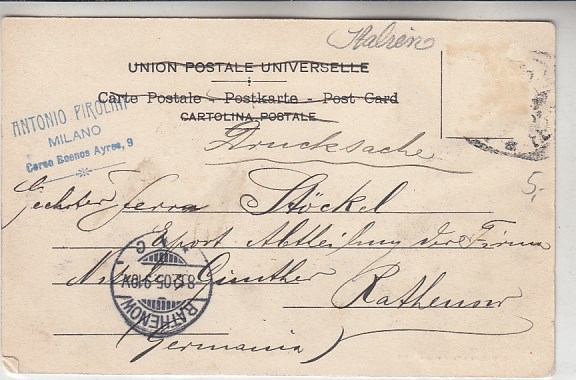 Italien
UNION POSTALE UNIVERSELLE
Carte Postale - Postkarte - Post Card
CARTOLINA POSTALE
ANTONIO PIROLINI
MILANO
Corso Buenos Ayres, 9
Drucksache
5,-
Geehrter Herrn Stöckel
Export Abtleilung der Firma
Nitsche Günther
Rathenow
(Germania)
RATHENOW
8.2.05.9-10V.